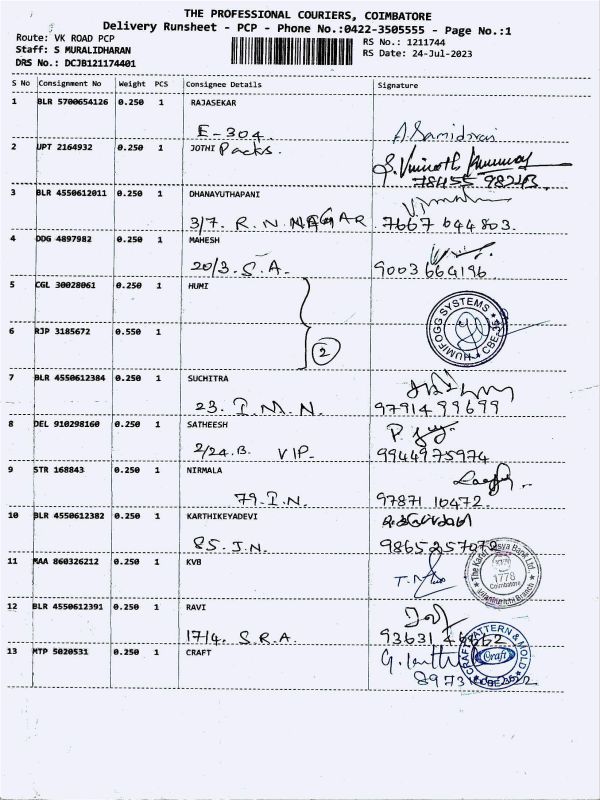 THE PROFESSIONAL COURIERS, COIMBATORE
Delivery Runsheet - PCP - Phone No.:0422-3505555 - Page No.:1
Route: VK ROAD PCP
Staff: S MURALIDHARAN
DRS No.: DCJB121174401
RS No.: 1211744
RS Date: 24-Jul-2023
S No Consignment No Weight PCS Consignee Details Signature
1 BLR 5700654126 0.250 1 RAJASEKAR
E-304.
2 UPT 2164932 0.250 1 JOTHI Packs.
3 BLR 4550612011 0.250 1 DHANAYUTHAPANI
3/7. R. N. NAGAR 7667 644803.
4 DDG 4897982 0.250 1 MAHESH
20/3. S.A. 9003664196
5 CGL 30028061 0.250 1 HUMI
HUMIFOGG SYSTEMS
6 RJP 3185672 0.550 1
2
7 BLR 4550612384 0.250 1 SUCHITRA
23. I.M.N. 9791499699
8 DEL 910298160 0.250 1 SATHEESH
2/24.B. VIP- 9944975974
9 STR 168843 0.250 1 NIRMALA
79.I.N. 97871 10472.
10 BLR 4550612382 0.250 1 KARTHIKEYADEVI
85. J.N. 9865257072
11 MAA 860326212 0.250 1 KVB
1778
Coimbatore
12 BLR 4550612391 0.250 1 RAVI
17/4. S.R.A.
13 MTP 5020531 0.250 1 CRAFT
CRAFT PATTERN & MOLD
Craft